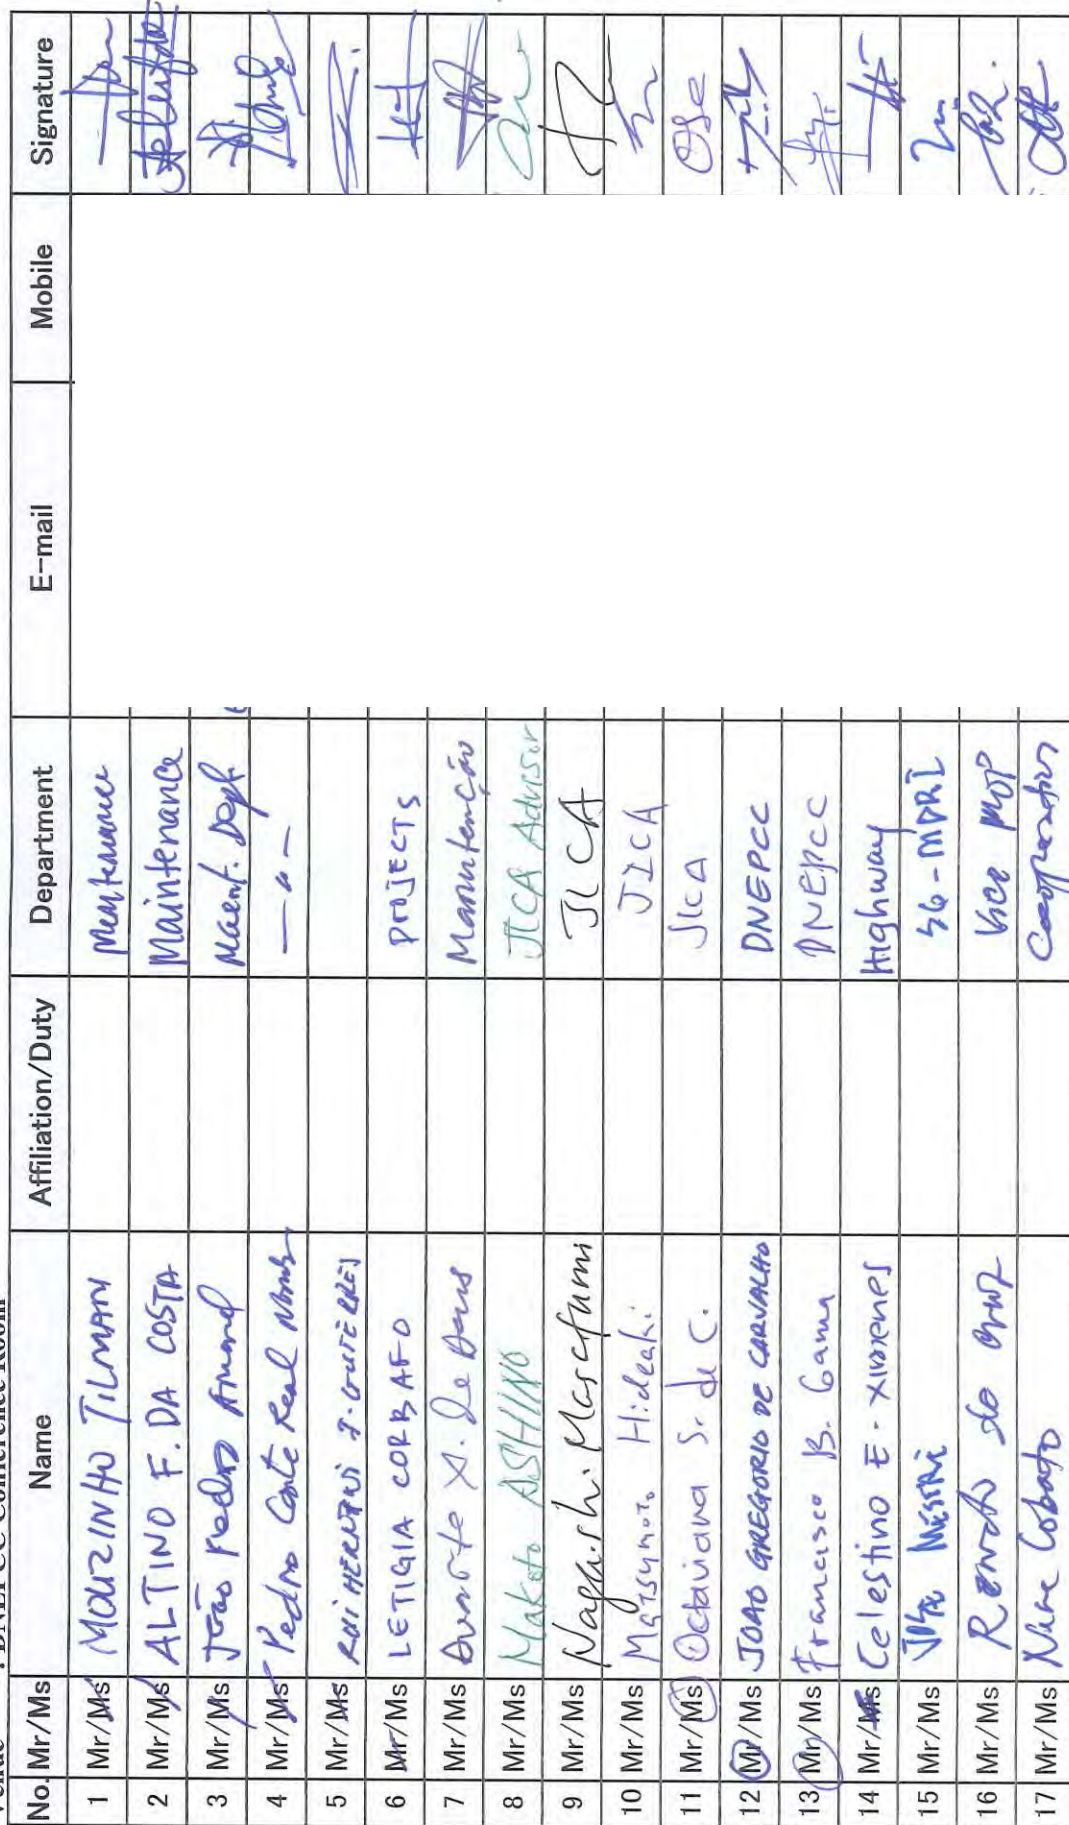 Venue : DNEPCC Conference Room
No. Mr/Ms Name Affiliation/Duty Department E-mail Mobile Signature
1 Mr/Ms MOUZINHO TILMAN
2 Mr/Ms ALTINO F. DA COSTA Maintenance
3 Mr/Ms João Pedro Amaral Maent. Dept.
4 Mr/Ms Pedro Conte Real — " —
5 Mr/Ms RUI HERNANI F. GUTERRES
6 Mr/Ms LETIGIA CORBAFO PROJECTS
7 Mr/Ms Duarte X. De Deus Manutenção
8 Mr/Ms Makoto ASHINO JICA Advisor
9 Mr/Ms Nagaishi Masafumi JICA
10 Mr/Ms Matsumoto Hideaki JICA
11 Mr/Ms Octaviana S. de C. JICA
12 Mr/Ms JOAO GREGORIO DE CARVALHO DNEPCC
13 Mr/Ms Francisco B. Gama DNEPCC
14 Mr/Ms Celestino E. XIMENES Highway
15 Mr/Ms MESTRE
16 Mr/Ms do Vice MOP
17 Mr/Ms Nune Lobato Cooperation